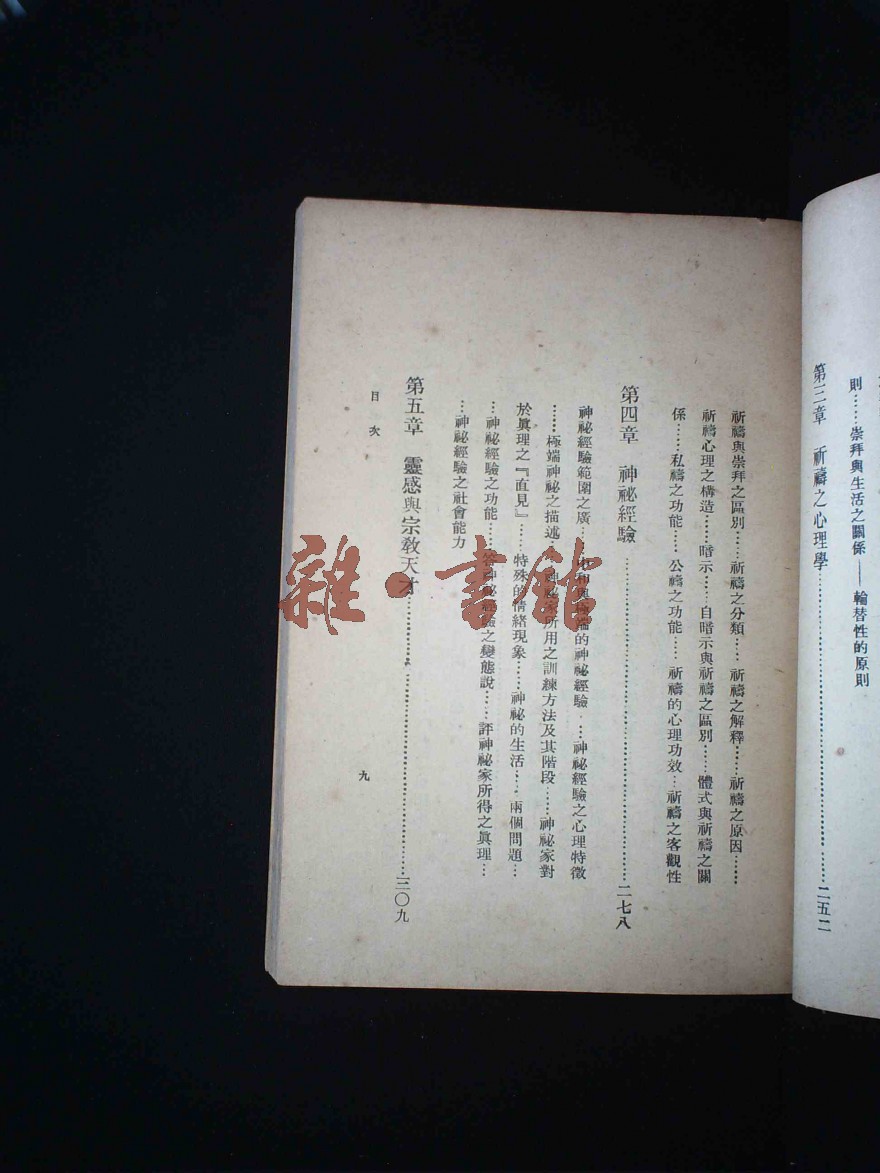 則……崇拜與生活之關係——輪替性的原則
第三章 祈禱之心理學……二五二
祈禱與崇拜之區別……祈禱之分類……祈禱之解釋……祈禱之原因……
祈禱心理之構造……暗示……自暗示與祈禱之區別……體式與祈禱之關
係……私禱之功能……公禱之功能……祈禱的心理功效…祈禱之客觀性
第四章 神祕經驗……二七八
神祕經驗範圍之廣……和與極端的神祕經驗……神祕經驗之心理特徵
……極端神祕之描述……神祕家所用之訓練方法及其階段……神祕家對
於眞理之『直見』……特殊的情緒現象……神祕的生活……兩個問題…
…神祕經驗之功能……答神祕經驗之變態說……評神祕家所得之眞理…
…神祕經驗之社會能力
第五章 靈感與宗教天才……三〇九
目次
九
雜·書館